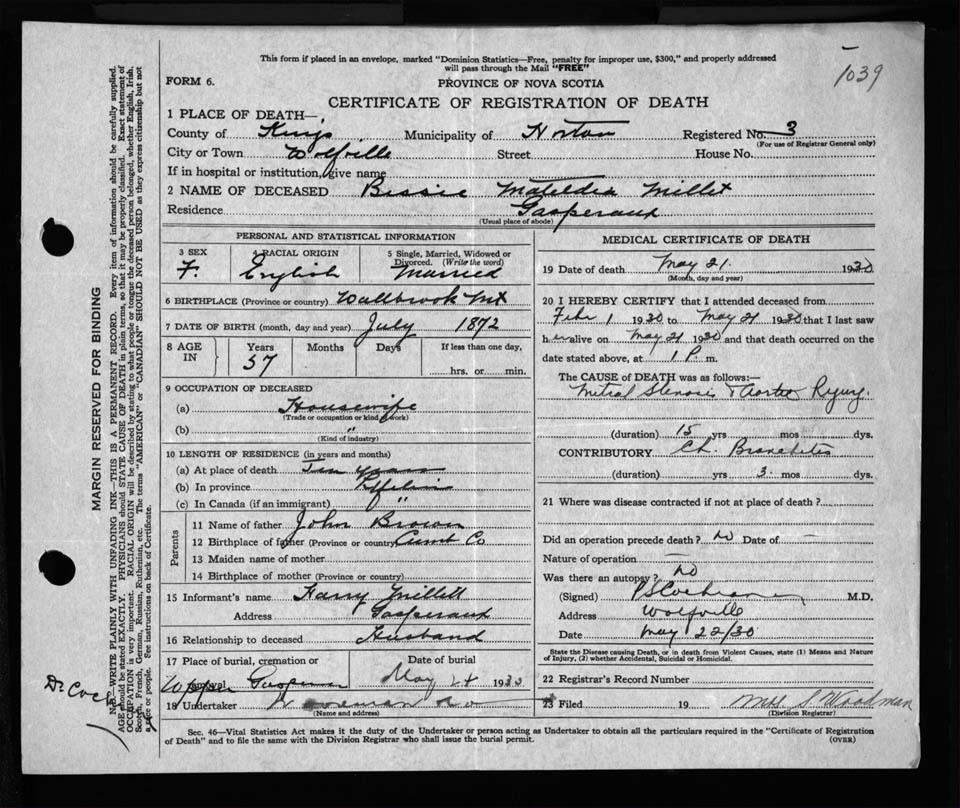 This form if placed in an envelope, marked "Dominion Statistics—Free, penalty for improper use, $300," and properly addressed
will pass through the Mail "FREE"
1039
FORM 6.
PROVINCE OF NOVA SCOTIA
CERTIFICATE OF REGISTRATION OF DEATH
1 PLACE OF DEATH—
County of King's Municipality of Horton Registered No. 3
(For use of Registrar General only)
City or Town Wolfville Street House No.
If in hospital or institution, give name
2 NAME OF DECEASED Bessie Matildia Millet
Residence Gasperaux
(Usual place of abode)
PERSONAL AND STATISTICAL INFORMATION
3 SEX 4 RACIAL ORIGIN 5 Single, Married, Widowed or
Divorced. (Write the word)
F. English Married
6 BIRTHPLACE (Province or country) Wallbrook Mt
7 DATE OF BIRTH (month, day and year) July 1872
8 AGE IN Years Months Days If less than one day,
57 hrs. or min.
9 OCCUPATION OF DECEASED
(a) Housewife
(Trade or occupation or kind of work)
(b) "
(Kind of industry)
10 LENGTH OF RESIDENCE (in years and months)
(a) At place of death Ten years
(b) In province
(c) In Canada (if an immigrant) "
Parents
11 Name of father John Brown
12 Birthplace of father (Province or country) Cumb Co
13 Maiden name of mother
14 Birthplace of mother (Province or country)
15 Informant's name Harry Millett
Address Gasperaux
16 Relationship to deceased Husband
17 Place of burial, cremation or removal Date of burial
May 24 1930
18 Undertaker
(Name and address)
MEDICAL CERTIFICATE OF DEATH
19 Date of death May 21. 1930
(Month, day and year)
20 I HEREBY CERTIFY that I attended deceased from
Febr 1 1930 to May 21 1930 that I last saw
her alive on May 21 1930 and that death occurred on the
date stated above, at 1 P. m.
The CAUSE OF DEATH was as follows:—
Mitral Stenosis & Aortic Regurg.
(duration) 15 yrs mos dys.
CONTRIBUTORY Ch. Bronchitis
(duration) yrs 3 mos dys.
21 Where was disease contracted if not at place of death?
Did an operation precede death? no Date of —
Nature of operation —
Was there an autopsy? no
(Signed) M.D.
Address Wolfville
Date May 22/30
State the Disease causing Death, or in death from Violent Causes, state (1) Means and Nature
of Injury, (2) whether Accidental, Suicidal or Homicidal.
22 Registrar's Record Number
23 Filed 19 Woodman
(Division Registrar)
Sec. 46—Vital Statistics Act makes it the duty of the Undertaker or person acting as Undertaker to obtain all the particulars required in the "Certificate of Registration
of Death" and to file the same with the Division Registrar who shall issue the burial permit.
(OVER)
MARGIN RESERVED FOR BINDING
N.B.—WRITE PLAINLY WITH UNFADING INK—THIS IS A PERMANENT RECORD. Every item of information should be carefully supplied.
AGE should be stated EXACTLY. PHYSICIANS should STATE CAUSE OF DEATH in plain terms, so that it may be properly classified. Exact statement of
OCCUPATION is very important. RACIAL ORIGIN will be described by stating to what people or tongue the deceased person belonged, whether English, Irish,
Scotch, French, German, Russian, Ruthenian, etc. The terms "AMERICAN" or "CANADIAN" SHOULD NOT BE USED as they express citizenship but not
a race or people. See instructions on back of Certificate.